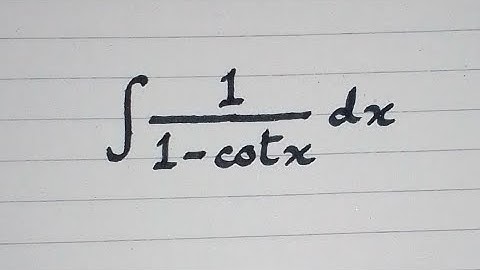 ∫ 1/(1-cotx) dx